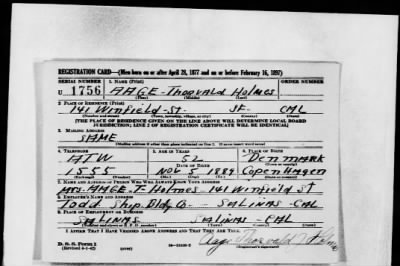 REGISTRATION CARD—(Men born on or after April 28, 1877 and on or before February 16, 1897)
SERIAL NUMBER 1. NAME (Print) ORDER NUMBER
U 1756 AAGE - Thorvald Holmes
(First) (Middle) (Last)
2. PLACE OF RESIDENCE (Print)
141 Winfield - St - SF - CAL
(Number and street) (Town, township, village, or city) (County) (State)
[THE PLACE OF RESIDENCE GIVEN ON THE LINE ABOVE WILL DETERMINE LOCAL BOARD
JURISDICTION; LINE 2 OF REGISTRATION CERTIFICATE WILL BE IDENTICAL]
3. MAILING ADDRESS
SAME
[Mailing address if other than place indicated on line 2. If same insert word same]
4. TELEPHONE 5. AGE IN YEARS 6. PLACE OF BIRTH
ATW 52 Denmark
DATE OF BIRTH
1555 NOV 5 1889 Copenhagen
7. NAME AND ADDRESS OF PERSON WHO WILL ALWAYS KNOW YOUR ADDRESS
Mrs. AAGE - T. Holmes 141 Winfield St
8. EMPLOYER'S NAME AND ADDRESS
Todd Ship. Bldg Co - SALINAS - CAL
9. PLACE OF EMPLOYMENT OR BUSINESS
SALINAS SALINAS - CAL
I AFFIRM THAT I HAVE VERIFIED ABOVE ANSWERS AND THAT THEY ARE TRUE.
D. S. S. Form 1
(Revised 4-1-42) (over) Aage Thorvald Holmes
(Registrant's signature)